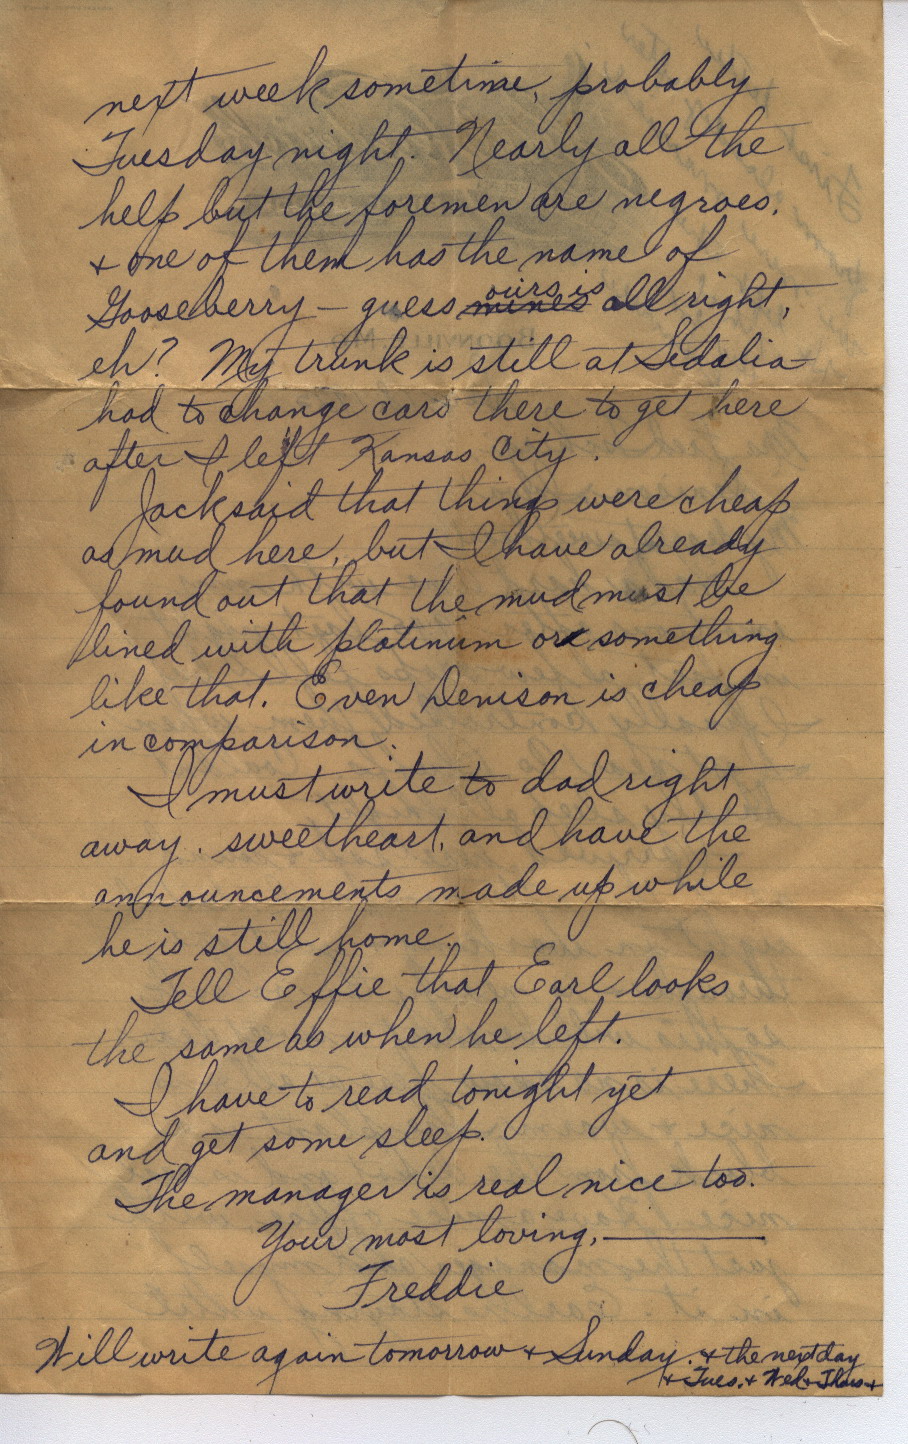 next week sometime, probably
Tuesday night. Nearly all the
help but the foremen are negroes,
+ one of them has the name of
Gooseberry – guess mines ours is all right,
eh? My trunk is still at Sedalia –
had to change cars there to get here
after I left Kansas City.
Jack said that things were cheap
as mud here, but I have already
found out that the mud must be
lined with platinum or something
like that. Even Denison is cheap
in comparison.
I must write to dad right
away, sweetheart, and have the
announcements made up while
he is still home.
Tell Effie that Earl looks
the same as when he left.
I have to read tonight yet
and get some sleep.
The manager is real nice too.
Your most loving,
Freddie
Will write again tomorrow + Sunday. + the next day
+ Tues. + Wed + Thurs +